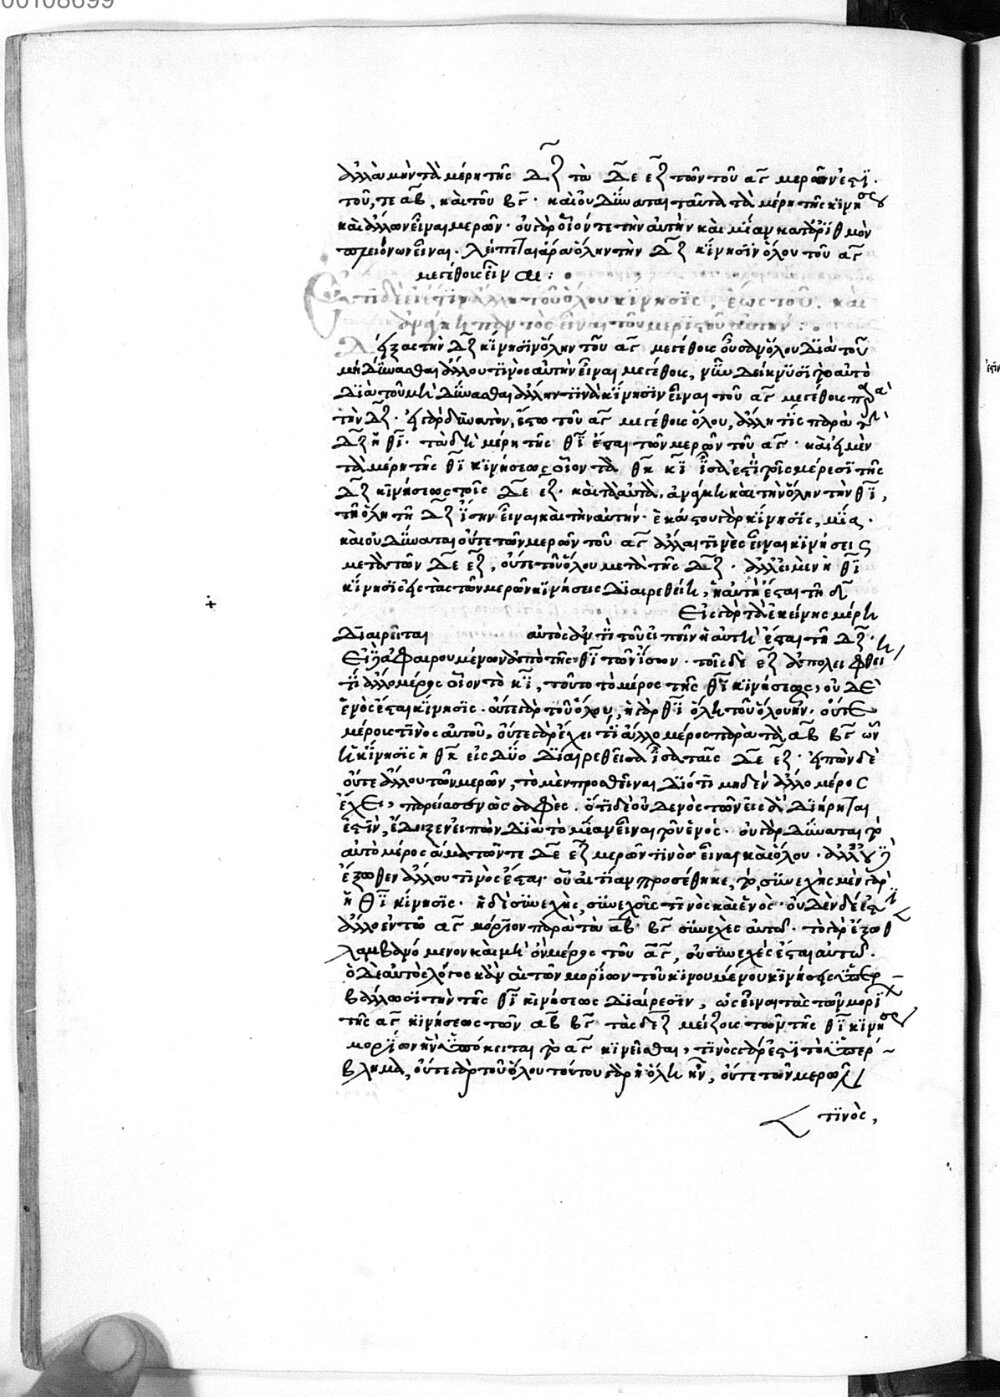 00108699
ἀλλὰ μὴν τὰ μέρη τῆς δζ τὰ δε εζ τῶν τοῦ αγ μερῶν ἐστι
τοῦ, τε αβ, καὶ τοῦ βγ. καὶ οὐ δύναται ταῦτα τὰ μέρη τῆς κινήσεως
καὶ ἄλλων εἶναι μερῶν. οὐ γὰρ οἷόν τε τὴν αὐτὴν καὶ μίαν κατ' ἀριθμὸν
πλειόνων εἶναι. λείπεται ἄρα ὅλην τὴν δζ κίνησιν ὅλου τοῦ αγ
μεγέθους εἶναι:
Ἔτι δὲ εἰ ἔστιν ἄλλη τοῦ ὅλου κίνησις, ἕως τοῦ. καὶ
ἀνάγκη παντὸς εἶναι τοῦ μεριστοῦ κίνησιν:
δείξας τὴν δζ κίνησιν ὅλην τοῦ αγ μεγέθους οὖσαν ὅλου διὰ τοῦ
μὴ δύνασθαι ἄλλου τινὸς αὐτὴν εἶναι μεγέθους, νῦν δείκνυσι τὸ αὐτὸ
διὰ τοῦ μὴ δύνασθαι ἄλλην τινὰ κίνησιν εἶναι τοῦ αγ μεγέθους παρὰ
τὴν δζ. εἰ γὰρ δυνατὸν, ἔστω τοῦ αγ μεγέθους ὅλου, ἄλλη τις παρὰ τὴν
δζ ἡ θι. τὰ δὴ μέρη τῆς θι ἔσται τῶν μερῶν τοῦ αγ. καὶ εἰ μὲν
τὰ μέρη τῆς θι κινήσεως οἷον τὰ θκ κι ἴσα ἐστὶ τοῖς μέρεσι τῆς
δζ κινήσεως τοῖς δε εζ. καὶ τὰ αὐτὰ, ἀνάγκη καὶ τὴν ὅλην τὴν θι,
τῇ ὅλῃ τῇ δζ ἴσην εἶναι καὶ τὴν αὐτήν. ἑκάστου γὰρ κίνησις, μία.
καὶ οὐ δύναται οὔτε τῶν μερῶν τοῦ αγ ἄλλαι τινὲς εἶναι κινήσεις
μετὰ τῶν δε εζ, οὔτε τοῦ ὅλου μετὰ τῆς δζ. ἀλλ' εἰ μὲν ἡ θι
κίνησις εἰς τὰς τῶν μερῶν κινήσεις διαιρεθείη, ἡ αὐτὴ ἔσται τῇ δζ
Εἰς γὰρ τὰ ἐκείνης μέρη
διαιρεῖται αὐτὸς ἀντὶ τοῦ εἰπεῖν ἡ αὐτὴ ἔσται τῇ δζ.
εἰ δὲ ἀφαιρουμένων ἀπὸ τῆς θι τῶν ἴσων τοῖς δε εζ ἀπολειφθείη
τι ἄλλο μέρος οἷον τὸ κι, τοῦτο τὸ μέρος τῆς θι κινήσεως, οὐδε
ἑνὸς ἔσται κίνησις. οὔτε γὰρ τοῦ ὅλου, ἡ γὰρ θι ὅλη τοῦ ὅλου ἦν. οὔτε
μέρους τινὸς αὐτοῦ, οὔτε γὰρ ἔχει τι ἄλλο μέρος παρὰ τὰ αβ βγ ὧν
ἡ κίνησις ἡ θκ εἰς δύο διαιρεθεῖσα ἴσα ταῖς δε εζ. εἰπὼν δὲ
οὔτε ἄλλου τῶν μερῶν, τὸ μὲν προσθεῖναι διότι μηδὲν ἄλλο μέρος
ἔχει, παρείασεν ὡς σαφές. ὅτι δὲ οὐδενὸς τῶν εἰς ἃ διῄρηται
ἐστὶν, ἔδειξεν εἰπὼν διὰ τὸ μίαν εἶναι τὴν ἑνὸς. οὐ γὰρ δύναται τὸ
αὐτὸ μέρος ἅμα τῶν τε δε εζ μερῶν τινὸς εἶναι καὶ ὅλου. ἀλλ' οὐδὲ
ἔξωθεν ἄλλου τινὸς ἔσται οὗ αἰτίαν προσέθηκε, τὸ, συνεχὴς μὲν γὰρ
ἡ θι κίνησις. ἡ δὲ συνεχὴς, συνεχοῦς τινος καὶ ἑνός. οὐδὲν δέ ἐστιν
ἄλλο ἐν τῷ αγ μόριον παρὰ τὰ αβ βγ συνεχὲς αὐτῷ. τὸ γὰρ ἔξωθεν
λαμβανόμενον καὶ μὴ ὂν μέρος τοῦ αγ, οὐ συνεχὲς ἔσται αὐτῷ.
ὁ δὲ αὐτὸς λόγος κἂν αἱ τῶν μορίων τοῦ κινουμένου κινήσεις ὑπερ
βάλλωσι τὴν τῆς θι κινήσεως διαίρεσιν, ὡς εἶναι τὰς τῶν μορίων
τῆς αγ κινήσεως τῶν αβ βγ τὰς δεζ μείζους τῶν τῆς θι κινήσεως
μορίων ἣν ὑπόκειται τὸ αγ κινεῖσθαι, τίνος γάρ ἐστι τὸ ὑπέρ
βλημα, οὔτε γὰρ τοῦ ὅλου τούτου γὰρ ἡ ὅλη ἦν, οὔτε τῶν μερῶν
τινὸς,